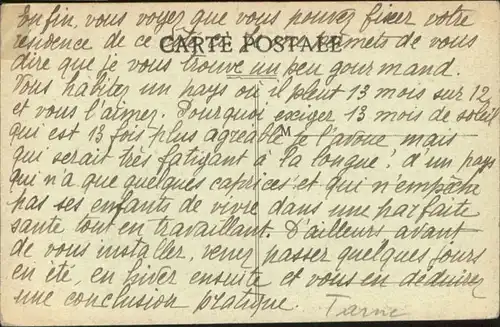 Enfin, vous voyez que vous pouvez fixer votre
résidence de ce permets de vous
CARTE POSTALE
dire que je vous trouve un peu gourmand.
Vous habitez un pays où il pleut 13 mois sur 12
et vous l'aimez. Pourquoi exiger 13 mois de soleil
qui est 13 fois plus agréable je l'avoue mais
M
qui serait très fatigant à la longue ! d'un pays
qui n'a que quelques caprices et qui n'empêche
pas ses enfants de vivre dans une parfaite
santé tout en travaillant. D'ailleurs avant
de vous installer, venez passer quelques jours
en été, en hiver ensuite et vous en déduirez
une conclusion pratique.
Tarne